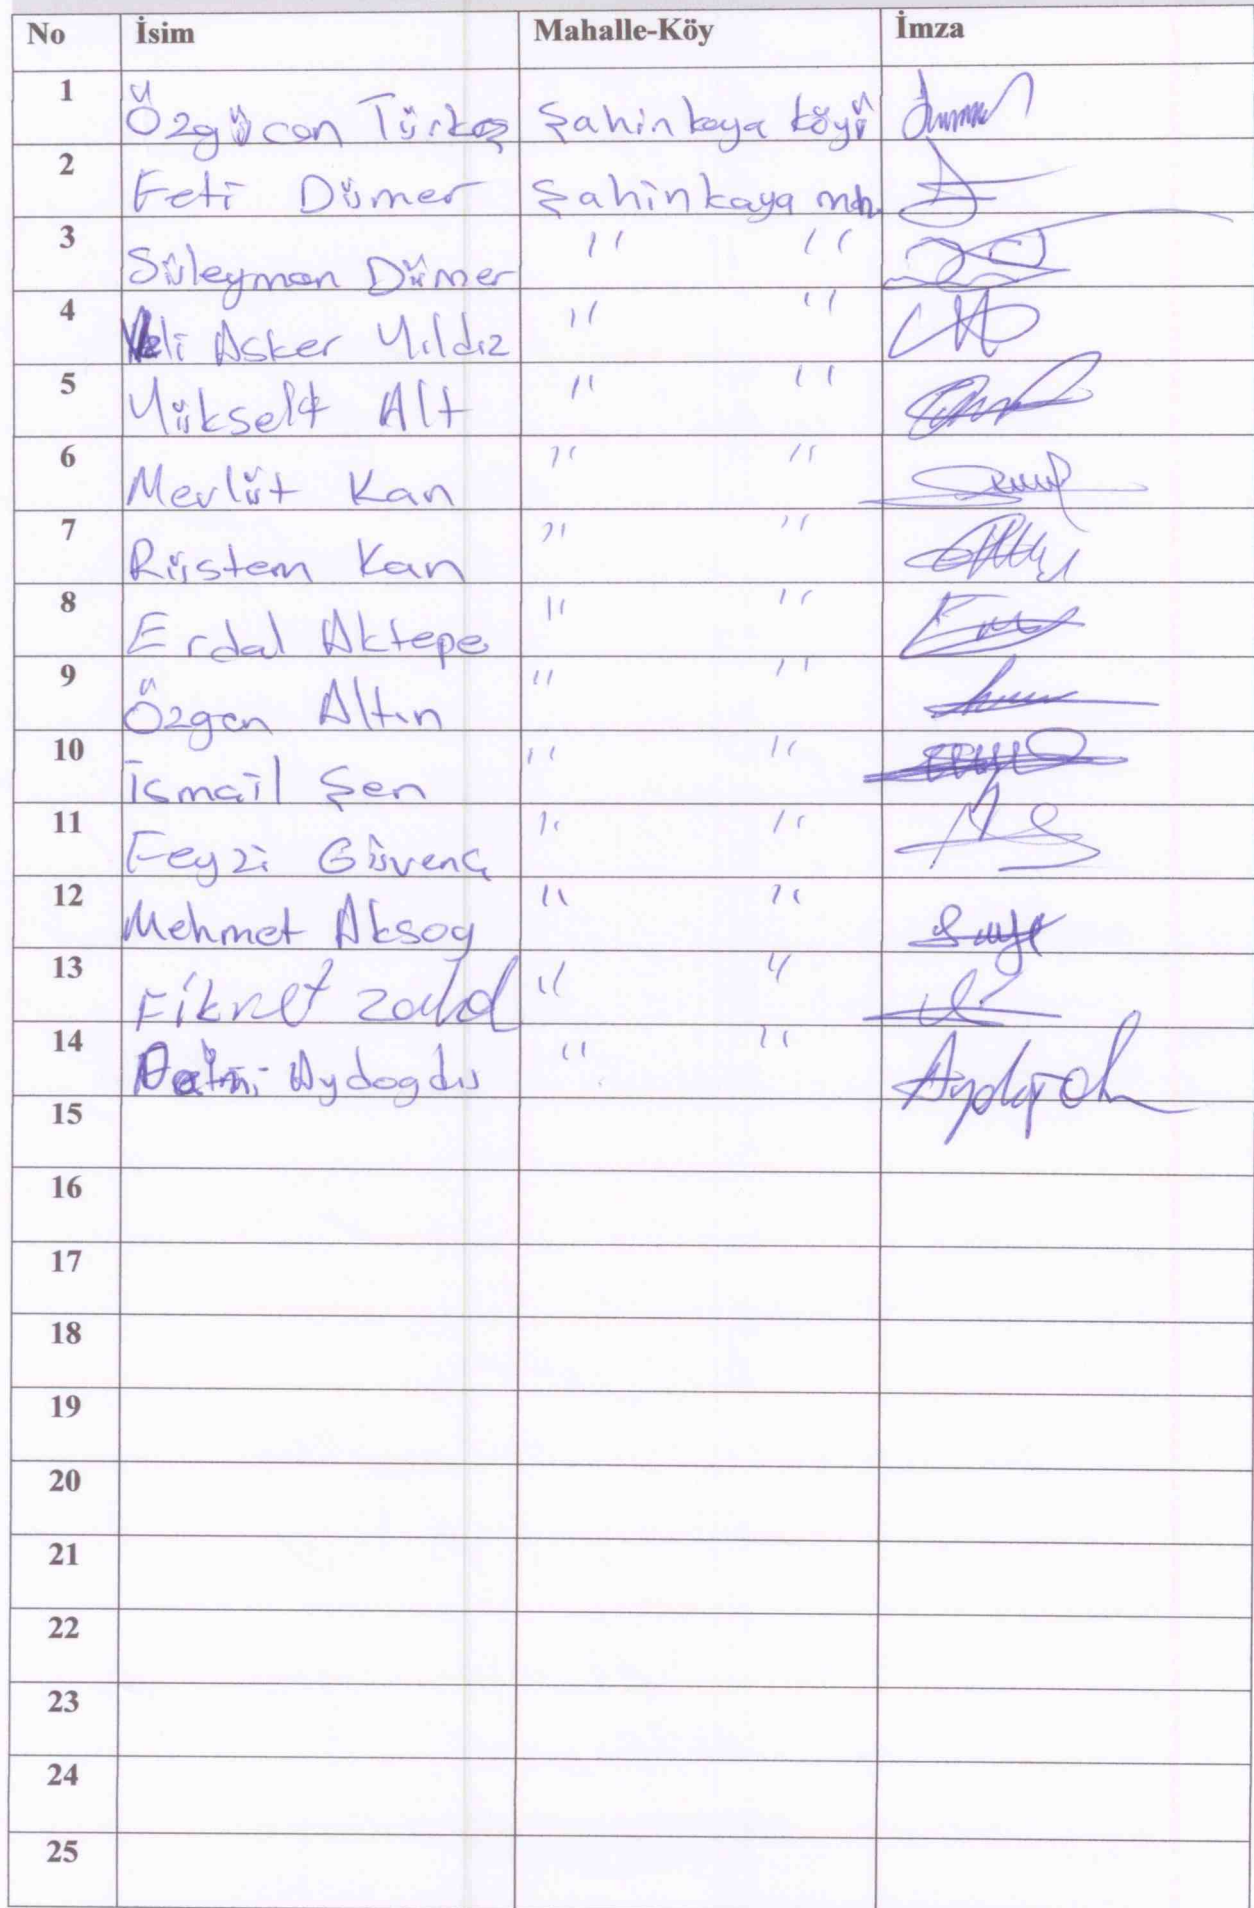 No İsim Mahalle-Köy İmza
1 Özgücan Türkeş Şahinkaya köyü
2 Feti Dümer Şahinkaya mh.
3 Süleyman Dümer " "
4 Veli Asker Yıldız " "
5 Yüksel Alt " "
6 Mevlüt Kan " "
7 Rüstem Kan " "
8 Erdal Aktepe " "
9 Özgen Altın " "
10 İsmail Şen " "
11 Feyzi Güvenç " "
12 Mehmet Aksoy " "
13 Fikret " "
14 Aydogdu " "
15
16
17
18
19
20
21
22
23
24
25